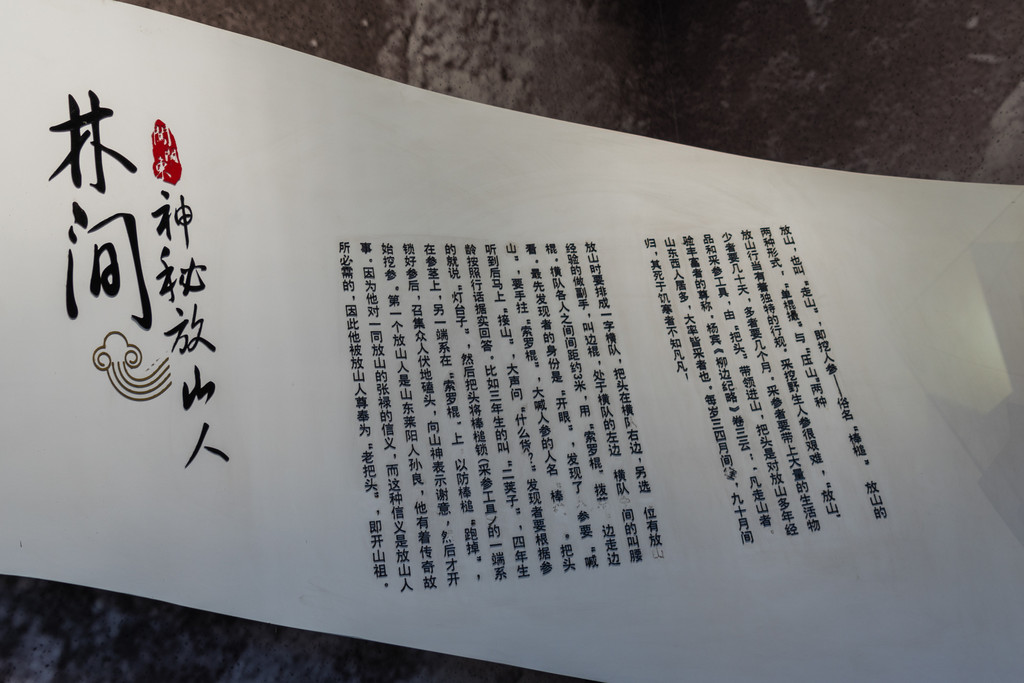 林间
神秘放山人
放山，也叫“走山”，即挖人参——俗名“棒槌” 放山的
两种形式，“单棍撮”与“压山”两种
放山行当有着独特的行规，采挖野生人参很艰难，“放山”
少者要几十天，多者要几个月，采参者要带上大量的生活物
品和采参工具，由“把头”带领进山，把头是对放山多年经
验丰富者的尊称，杨宾《柳边纪略》卷三云：“凡走山者，
山东西人居多，大率皆采者也，每岁三四月间，九十月间
归，其死于饥寒者不知凡几！
放山时要排成一字横队，把头在横队右边，另选 位有放山
经验的做副手，叫边棍，处于横队的左边 横队 间的叫腰
棍，横队各人之间间距约3米，用“索罗棍”拨 边走边
看，最先发现者的身份是“开眼”，发现了 参要“喊
山”，要手拄“索罗棍”，大喊人参的人名 棒 ，把头
听到后马上“接山”，大声问“什么货？”发现者要根据参
龄按照行话据实回答，比如三年生的叫“二荚子”，四年生
的就说“灯台子”，然后把头将棒槌锁（采参工具）的一端系
在参茎上，另一端系在“索罗棍”上 以防棒槌“跑掉”，
锁好参后，召集众人伏地磕头，向山神表示谢意，然后才开
始挖参。第一个放山人是山东莱阳人孙良，他有着传奇故
事，因为他对一同放山的张禄的信义，而这种信义是放山人
所必需的，因此他被放山人尊奉为“老把头”，即开山祖。